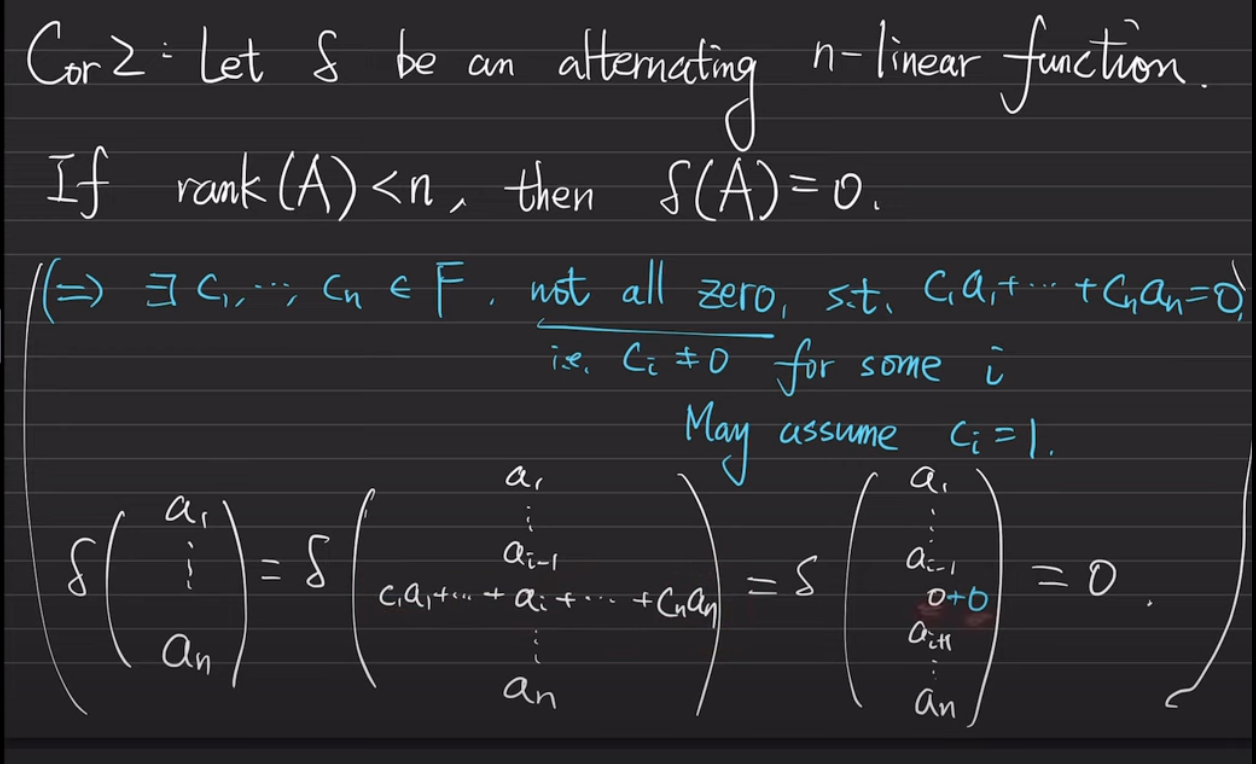 Cor 2: Let δ be an alternating n-linear function.
If rank(A)<n, then δ(A)=0.
(⇒ ∃ c₁, ⋯, cₙ ∈ F, not all zero, s.t. c₁a₁+⋯+cₙaₙ=0,
i.e. cᵢ ≠ 0 for some i
May assume cᵢ=1.
δ(a₁ ⋮ aₙ) = δ(a₁ ⋮ aᵢ₋₁ c₁a₁+⋯+aᵢ+⋯+cₙaₙ ⋮ aₙ) = δ(a₁ ⋮ aᵢ₋₁ 0+0 aᵢ₊₁ ⋮ aₙ) = 0.)